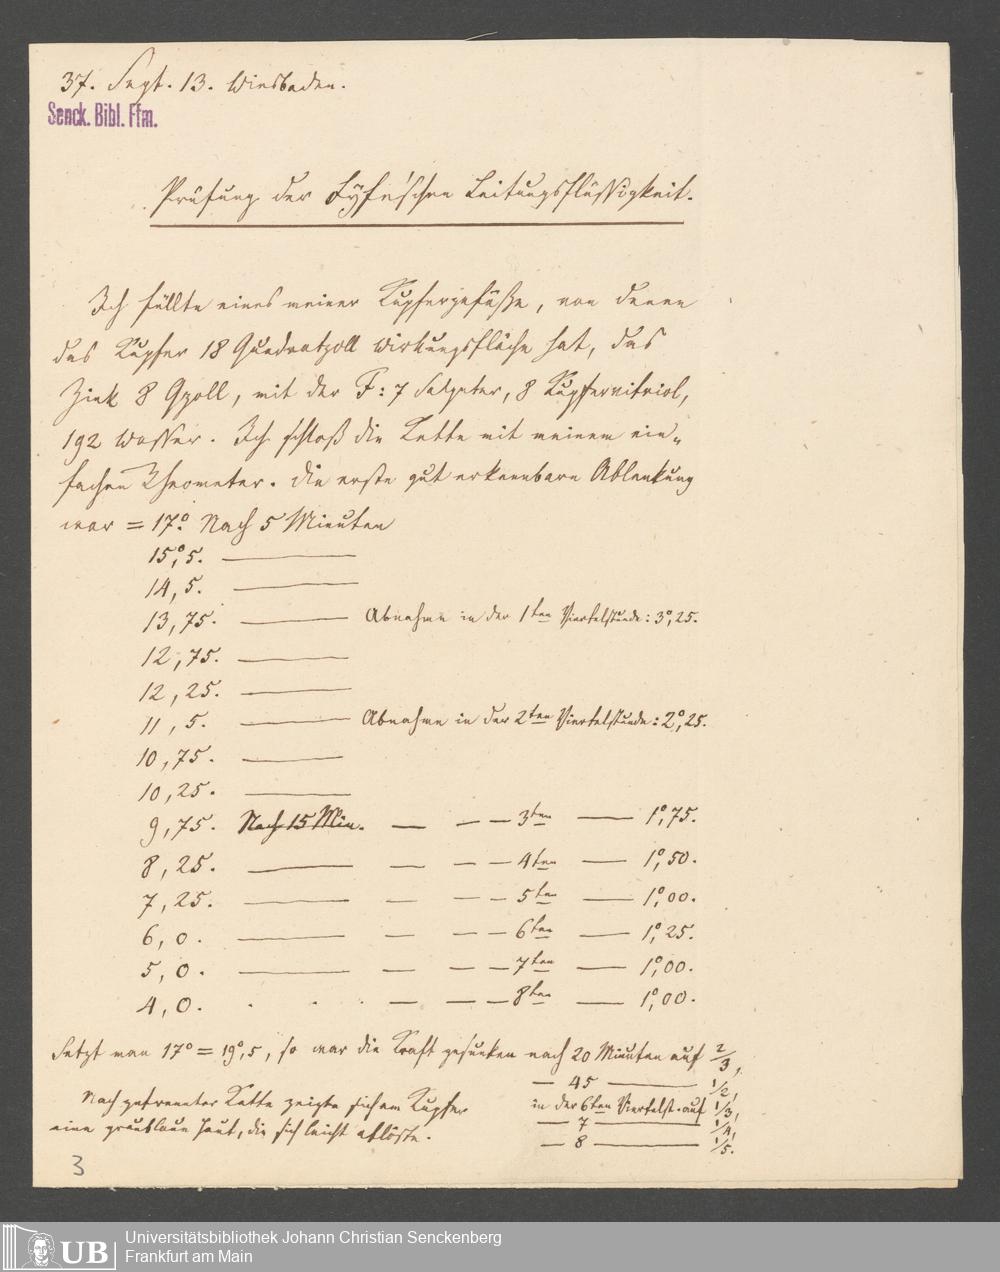 37. Sept. 13. Wiesbaden.
Senck. Bibl. Ffm.
Prüfung der Fyfe'schen Leitungsflüssigkeit.
Ich füllte eines meiner Kupfergefäße, von denen
das Kupfer 18 Quadratzoll Wirkungsfläche hat, das
Zink 8 Qzoll, mit der F: 7 Salpeter, 8 Kupfervitriol,
192 Wasser. Ich schloß die Kette mit meinem ein„
fachen Rheometer. Die erste gut erkennbare Ablenkung
war = 17°. Nach 5 Minuten
15°,5. —
14,5. —
13,75. — Abnahme in der 1ten Viertelstunde: 3°,25.
12,75. —
12,25. —
11,5. — Abnahme in der 2ten Viertelstunde: 2°,25.
10,75. —
10,25. —
9,75. Nach 15 Min. — — — 3ten — 1°,75.
8,25. — — — — 4ten — 1°,50.
7,25. — — — — 5ten — 1°,00.
6,0. — — — — 6ten — 1°,25.
5,0. — — — — 7ten — 1°,00.
4,0. . . . — — — 8ten — 1°,00.
Setzt man 17° = 19°,5, so war die Kraft gesunken nach 20 Minuten auf 2/3,
— 45 — 1/2,
in der 6ten Viertelst. auf 1/3,
— 7 — 1/4,
— 8 — 1/5.
Nach getrennter Kette zeigte sich am Kupfer
eine graublaue Haut, die sich leicht ablöste.
3
UB
Universitätsbibliothek Johann Christian Senckenberg
Frankfurt am Main